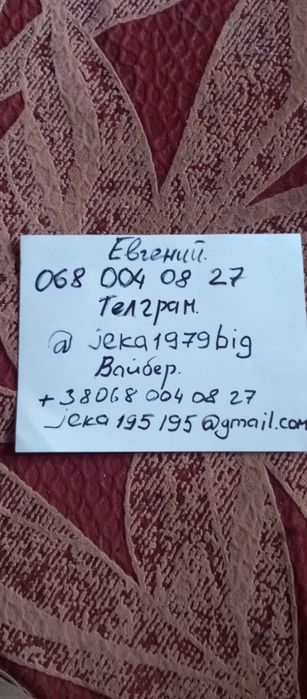 Евгений.
068 004 08 27
Телграм.
@ jeka1979big
Вайбер.
+38068 004 08 27
jeka195195@gmail.com